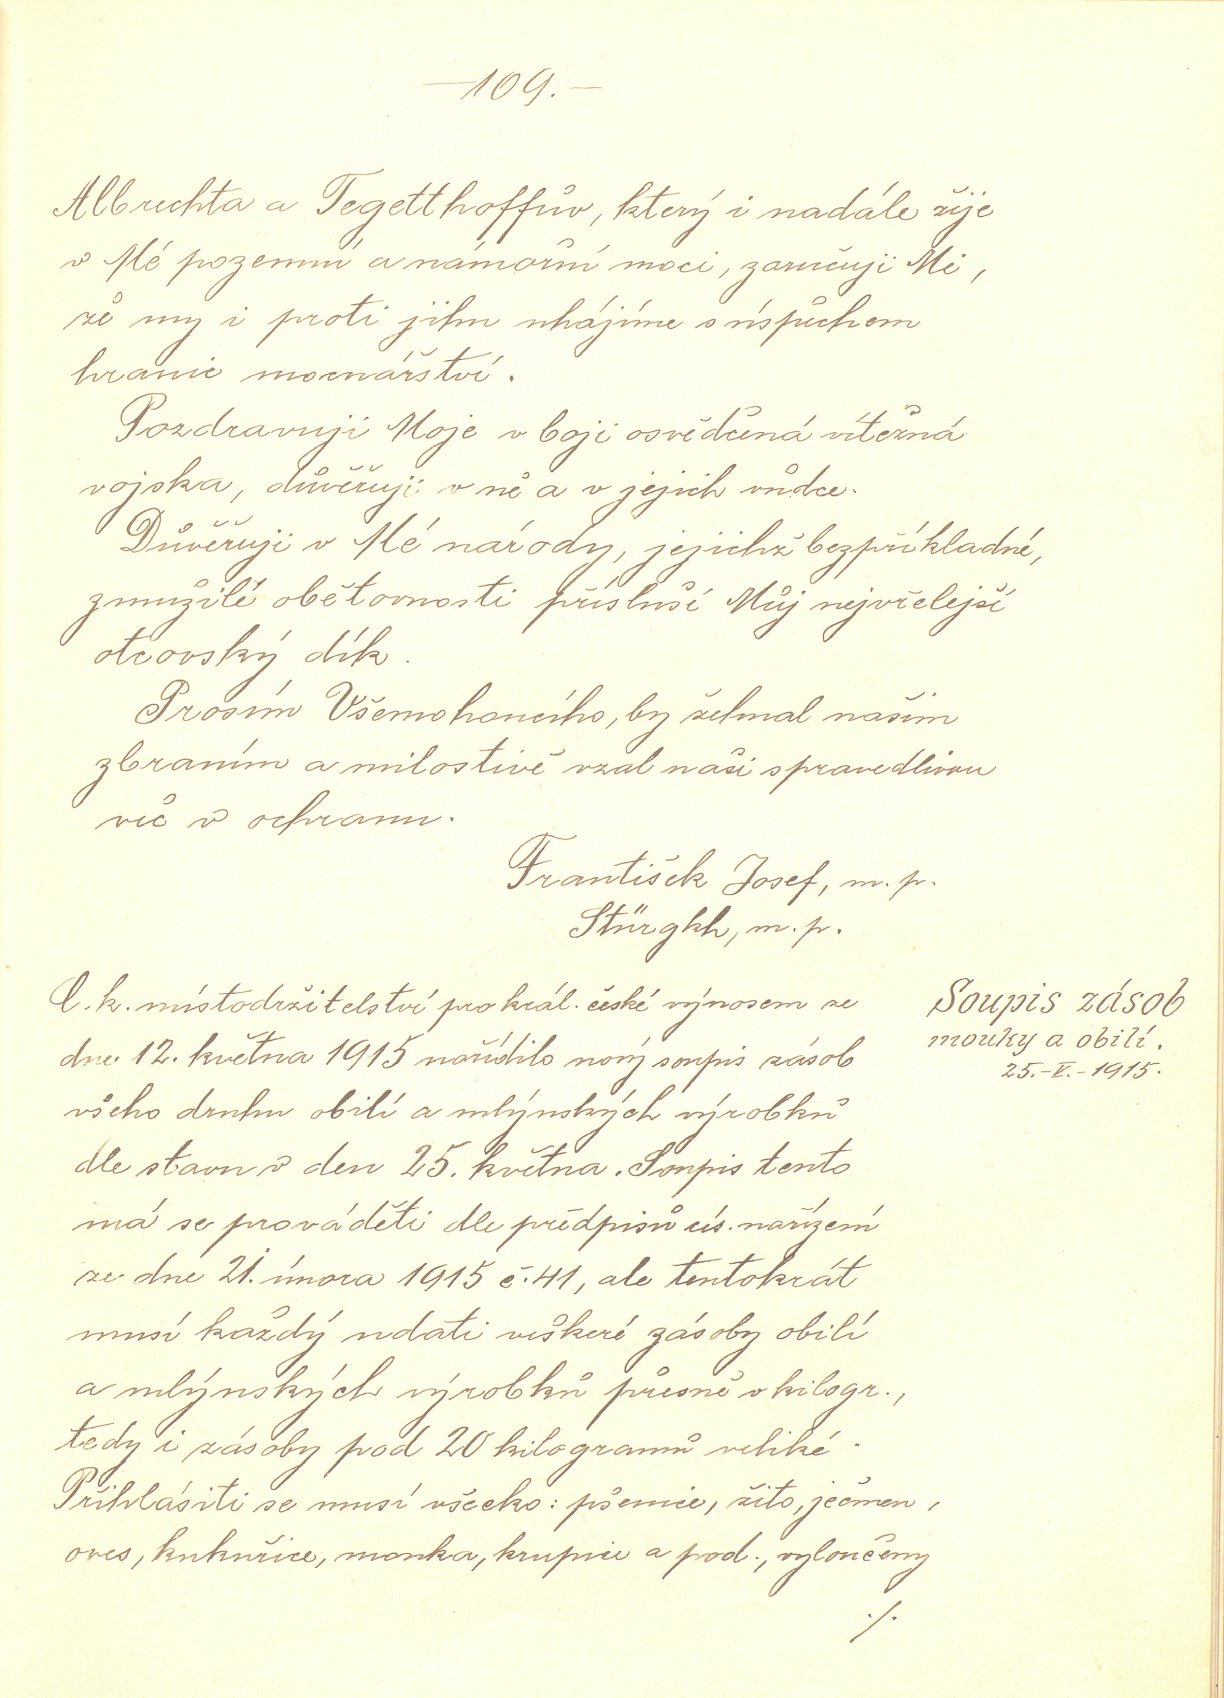 —109.—
Albrechta a Tegetthoffův, který i nadále žije
v Mé pozemní a námořní moci, zaručují Mi,
že my i proti jihu uhájíme s úspěchem
hranic mocnářství.
Pozdravuji Moje v boji osvědčená vítězná
vojska, důvěřuji v ně a v jejich vůdce.
Důvěřuji v Mé národy, jejichž bezpříkladné,
zmužilé obětovnosti přísluší Můj nejvřelejší
otcovský dík.
Prosím Všemohoucího, by žehnal našim
zbraním a milostivě vzal naši spravedlivou
věc v ochranu.
František Josef, m. p.
Stürgkh, m. p.
Soupis zásob
mouky a obilí.
25.-V.-1915.
C. k. místodržitelství pro král. české výnosem ze
dne 12. května 1915 nařídilo nový soupis zásob
všeho druhu obilí a mlýnských výrobků
dle stavu v den 25. května. Soupis tento
má se prováděti dle předpisů cís. nařízení
ze dne 21. února 1915 č. 41, ale tentokrát
musí každý udati veškeré zásoby obilí
a mlýnských výrobků přesně v kilogr.,
tedy i zásoby pod 20 kilogramů veliké.
Přihlásiti se musí všecko: pšenice, žito, ječmen,
oves, kukuřice, mouka, krupice a pod., vyloučeny
./.